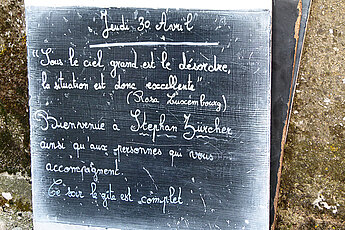 Jeudi 30 Avril
"Sous le ciel grand est le désordre,
la situation est donc excellente"
(Rosa Luxembourg)
Bienvenue à Stephan Zürcher
ainsi qu'aux personnes qui vous
accompagnent.
Ce soir le gîte est complet